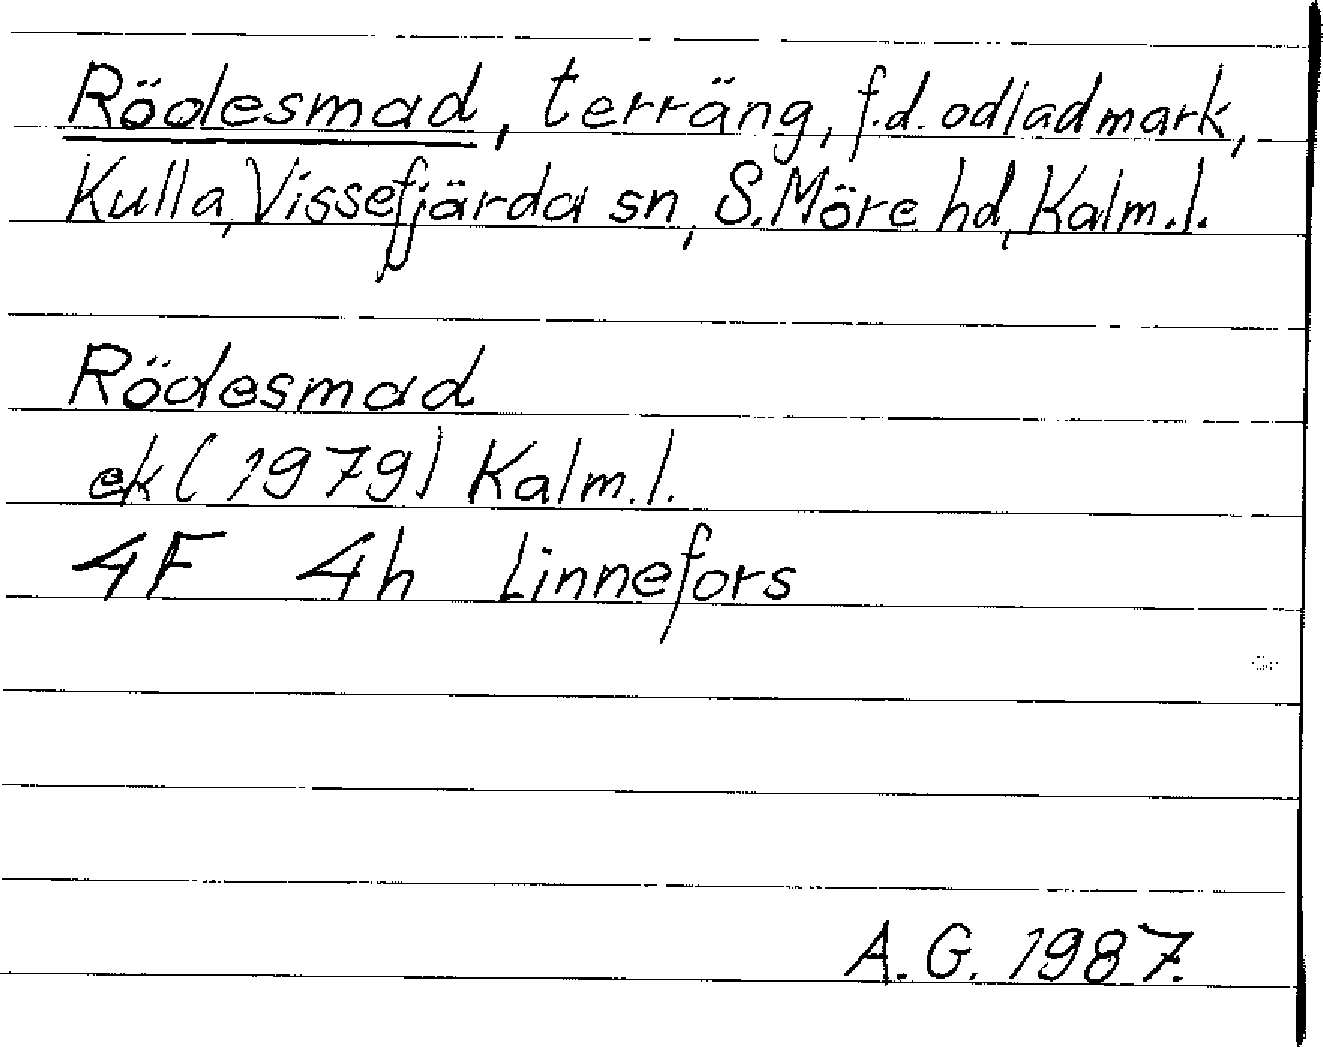 Rödesmad, terräng, f.d. odlad mark,
Kulla, Vissefjärda sn, S. Möre hd, Kalm.l.
Rödesmad
ek (1979) Kalm.l.
4F 4h Linnefors
A.G. 1987.